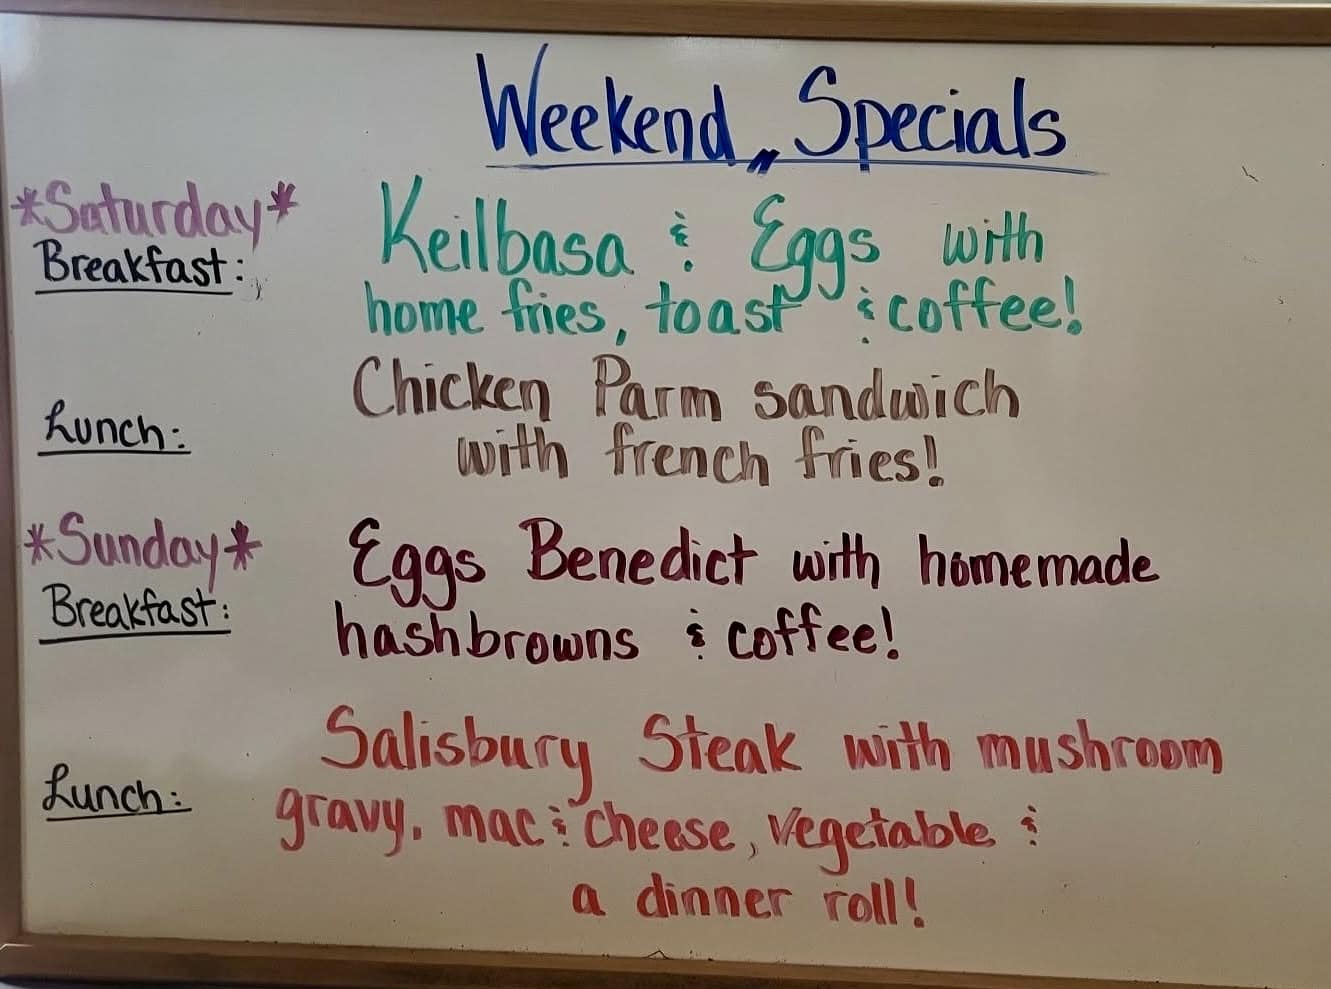 Weekend Specials
*Saturday*
Breakfast: Keilbasa & Eggs with
home fries, toast & coffee!
Lunch: Chicken Parm sandwich
with french fries!
*Sunday*
Breakfast: Eggs Benedict with homemade
hashbrowns & coffee!
Lunch: Salisbury Steak with mushroom
gravy, mac & cheese, vegetable &
a dinner roll!